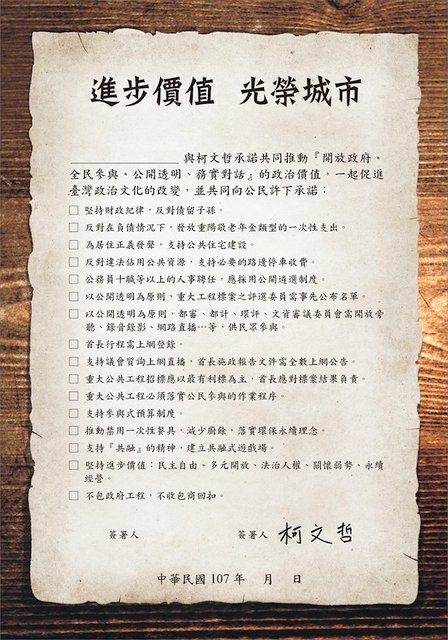 進步價值 光榮城市
與柯文哲承諾共同推動『開放政府、
全民參與、公開透明、務實對話』的政治價值,一起促進
臺灣政治文化的改變,並共同向公民許下承諾:
□ 堅持財政紀律,反對債留子孫。
□ 反對在負債情況下,發放重陽敬老年金類型的一次性支出。
□ 為居住正義發聲,支持公共住宅建設。
□ 反對違法佔用公共資源,支持必要的路邊停車收費。
□ 公務員十職等以上的人事聘任,應採用公開遴選制度。
□ 以公開透明為原則,重大工程標案之評選委員需事先公布名單。
□ 以公開透明為原則,都審、都計、環評、文資審議委員會需開放旁
聽、錄音錄影、網路直播…等,供民眾參與。
□ 首長行程需上網登錄。
□ 支持議會質詢上網直播,首長施政報告文件需全數上網公告。
□ 重大公共工程招標應以最有利標為主,首長應對標案結果負責。
□ 重大公共工程必須落實公民參與的作業程序。
□ 支持參與式預算制度。
□ 推動禁用一次性餐具,減少廚餘,落實環保永續理念。
□ 支持『共融』的精神,建立共融式遊戲場。
□ 堅持進步價值:民主自由、多元開放、法治人權、關懷弱勢、永續
經營。
□ 不包政府工程,不收包商回扣。
簽署人 簽署人 柯文哲
中華民國 107 年 月 日